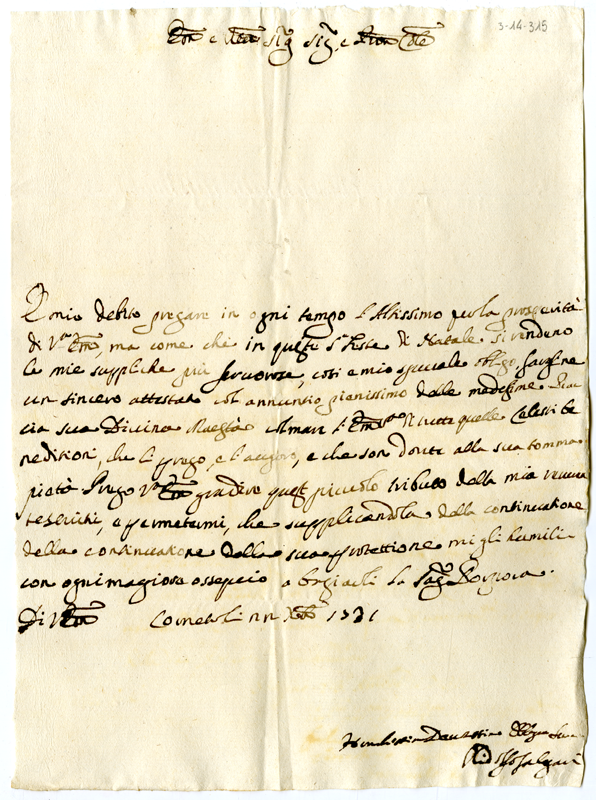 3-14-315
Em̃o e Reṽmo Sig.r Sig.r e Pron Col.mo
È mio debito pregare in ogni tempo l'Altissimo per la prosperità
di V.ra Em̃a, ma come che in queste S.te Feste di Natale si rendono
le mie suppliche più fervorose, così è mio speciale obligo fargliene
un sincero attestato col annuntio pienissimo delle medesime. Piac
cia sua Divina Maestà colmare l'Em̃a V.ra di tutte quelle Celesti be
neditioni, che li prego, e l'auguro, e che son dovute alla sua somma
pietà. Prego V.ra Em̃a gradire questo piccolo tributo della mia venera
e permetermi, che supplicandola della continuatione
della continuatione della sua protettione mi gli humili
con ogni magiore ossequio a bagiarli la Sag.ra Porpora.
Di V. Em̃a Corneto li Xbre 1721
Humilissimo Devotissimo Obligm̃o